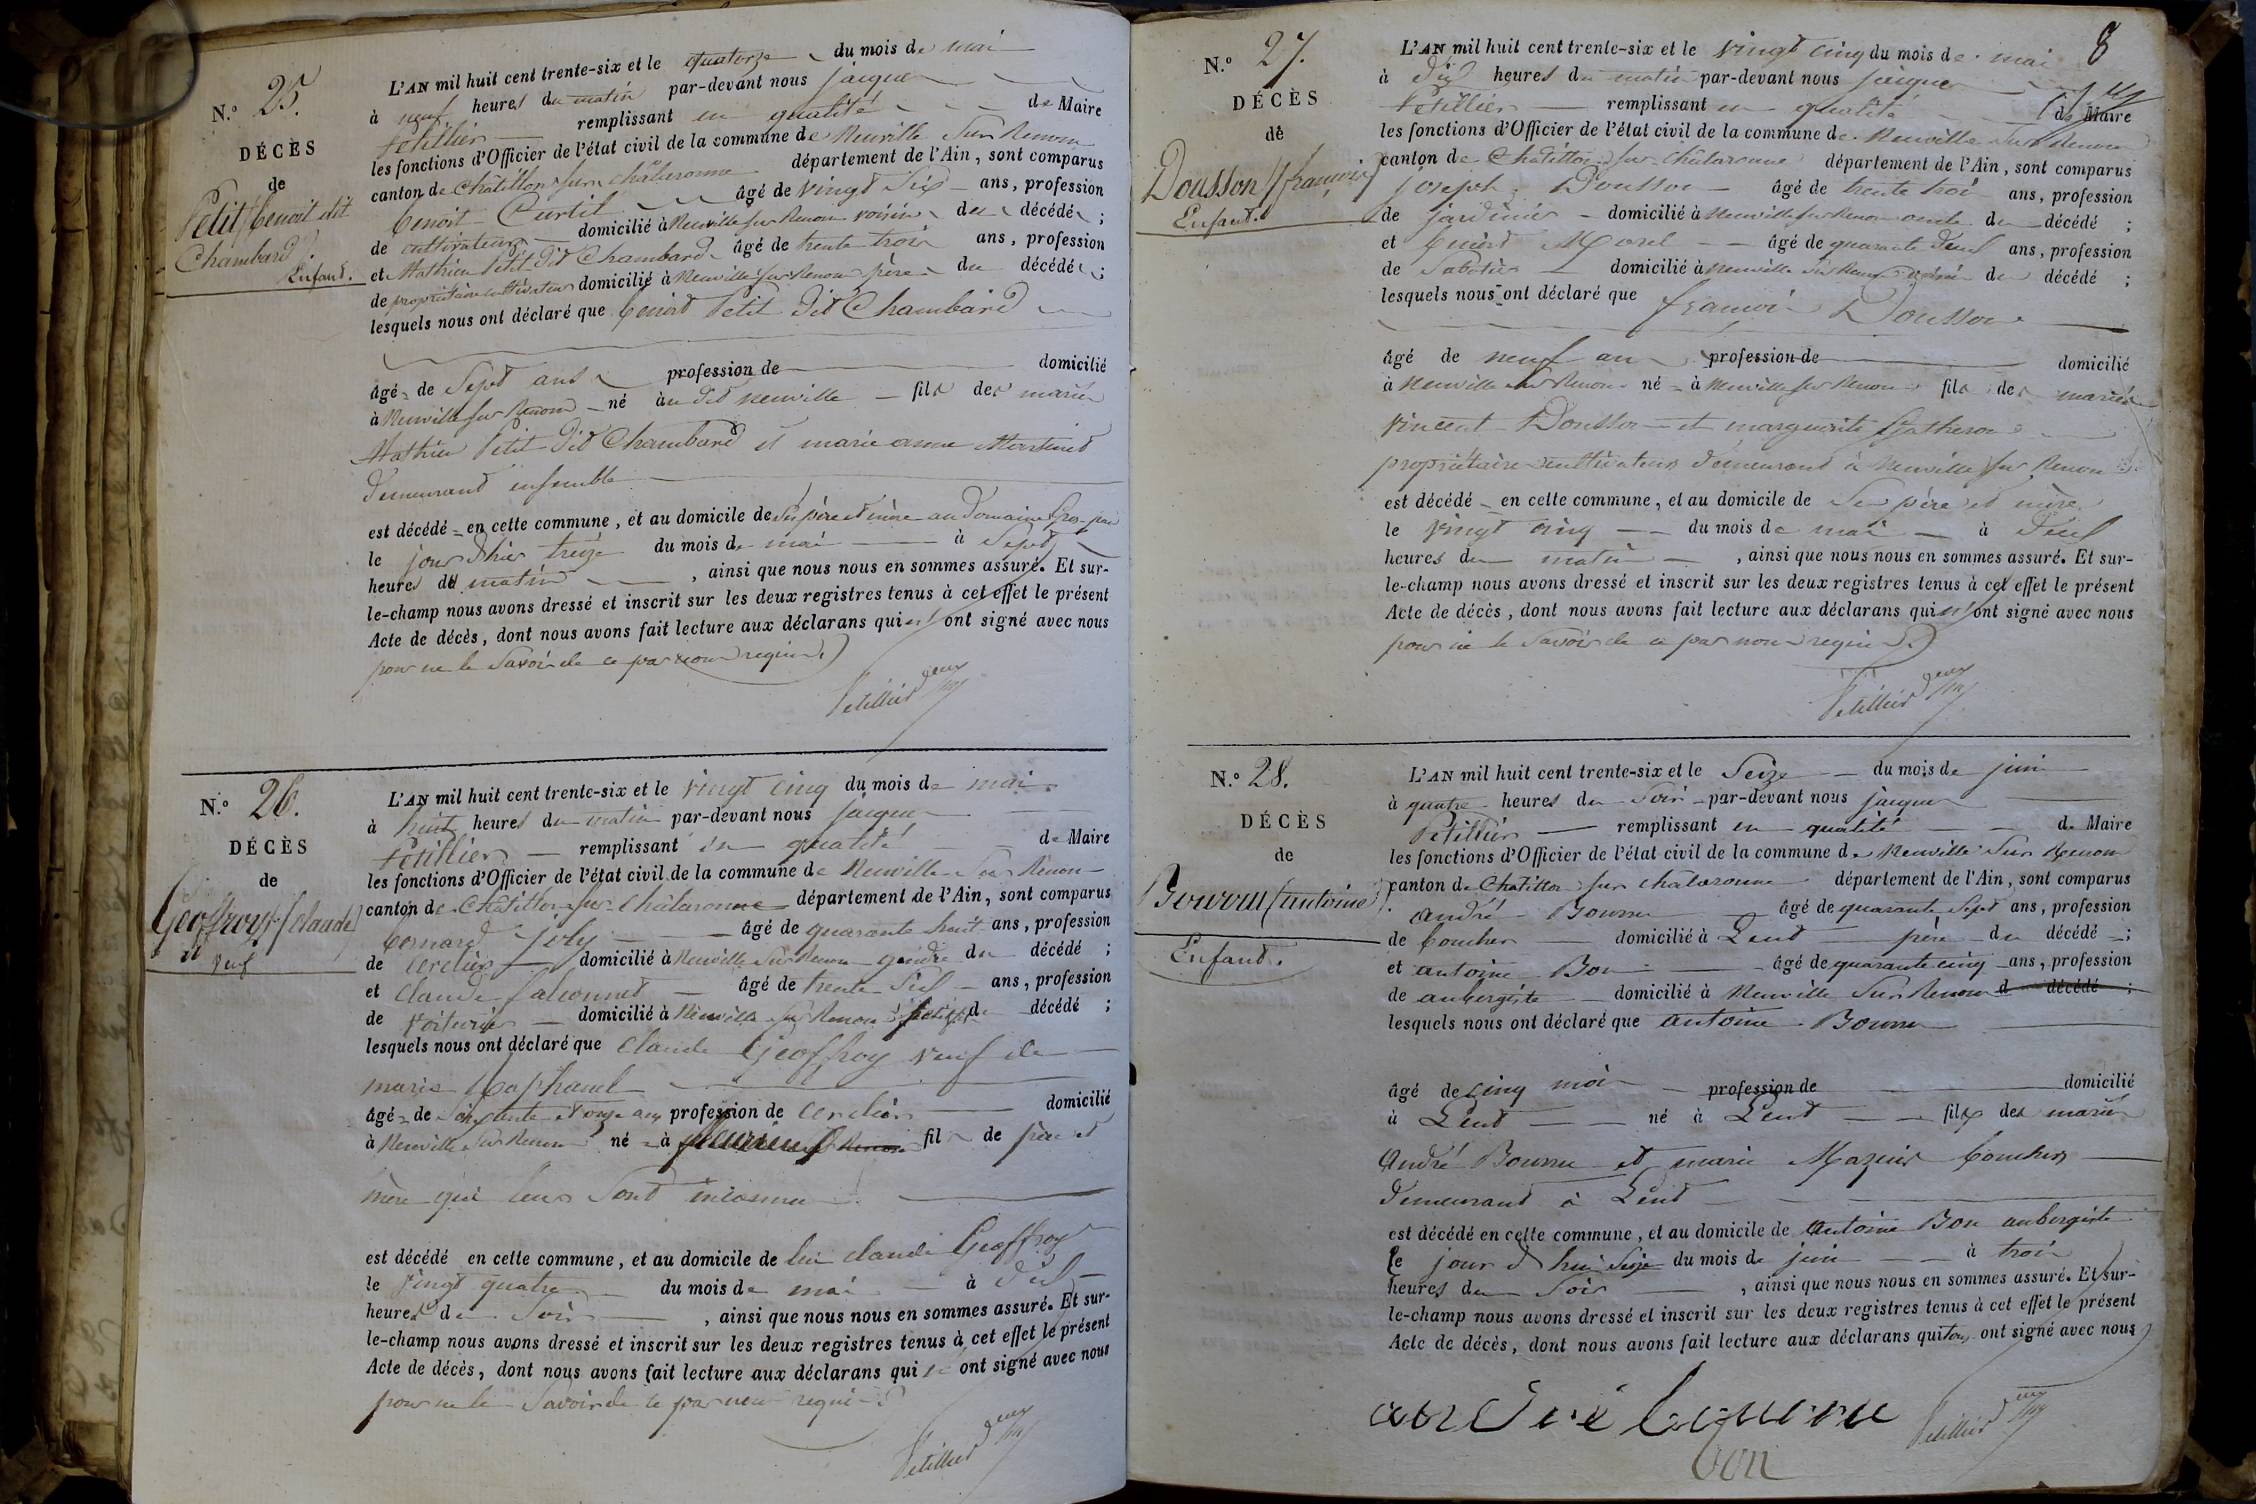 N.º 25.
DÉCÈS
de
Petit (benoit dit
Chambard)
Enfant.
L'AN mil huit cent trente-six et le quatorze du mois de mai
à neuf heures du matin par-devant nous jacques
Petillier remplissant en qualité de Maire
les fonctions d'Officier de l'état civil de la commune de Neuville sur Renom
canton de Châtillon sur châlaronne département de l'Ain, sont comparus
benoit Curtil âgé de vingt six ans, profession
de cultivateur domicilié à Neuville sur Renom voisin du décédé ;
et Mathieu Petit dit Chambard âgé de trente trois ans, profession
de propriétaire cultivateur domicilié à Neuville sur Renom père du décédé ;
lesquels nous ont déclaré que benoit Petit dit Chambard
âgé de Sept ans profession de domicilié
à Neuville sur Renom né au dit neuville fils des mariés
Mathieu Petit dit Chambard et marie anne
demeurant ensemble
est décédé en cette commune, et au domicile de Ses père et mère au Domaine
le jour d'hier treize du mois de mai à Sept
heures du matin , ainsi que nous nous en sommes assuré. Et sur-
le-champ nous avons dressé et inscrit sur les deux registres tenus à cet effet le présent
Acte de décès, dont nous avons fait lecture aux déclarans qui n' ont signé avec nous
pour ne le Savoir de ce par nous requis.
Petillier
N.º 26.
DÉCÈS
de
Geoffroy (claude)
Veuf
L'AN mil huit cent trente-six et le vingt cinq du mois de mai
à huit heures du matin par-devant nous jacques
Petillier remplissant en qualité de Maire
les fonctions d'Officier de l'état civil de la commune de Neuville sur Renom
canton de Châtillon sur Châlaronne département de l'Ain, sont comparus
bernard joly âgé de quarante huit ans, profession
de cerclier domicilié à Neuville sur Renom gendre du décédé ;
et Claude falconnet âgé de trente dix ans, profession
de voiturier domicilié à Neuville sur Renom du décédé ;
lesquels nous ont déclaré que Claude Geoffroy veuf de
marie
âgé de Soixante et onze ans profession de cerclier domicilié
à Neuville sur Renom né à fils de père et
mère qui leur Sont inconnu
est décédé en cette commune, et au domicile de lui claude Geoffroy
le vingt quatre du mois de mai à dix
heures du Soir , ainsi que nous nous en sommes assuré. Et sur-
le-champ nous avons dressé et inscrit sur les deux registres tenus à cet effet le présent
Acte de décès, dont nous avons fait lecture aux déclarans qui n' ont signé avec nous
pour ne le Savoir de ce par nous requis
Petillier
8
N.º 27.
DÉCÈS
de
Dousson (françois)
Enfant.
L'AN mil huit cent trente-six et le vingt cinq du mois de mai
à dix heures du matin par-devant nous jacques
Petillier remplissant en qualité de Maire
les fonctions d'Officier de l'état civil de la commune de Neuville sur Renom
canton de Châtillon sur châlaronne département de l'Ain, sont comparus
joseph Dousson âgé de trente trois ans, profession
de jardinier domicilié à Neuville sur Renom oncle du décédé ;
et benoit Morel âgé de quarante deux ans, profession
de Sabotier domicilié à Neuville sur Renom voisin du décédé ;
lesquels nous ont déclaré que françois Dousson
âgé de neuf ans profession de domicilié
à Neuville sur Renom né à Neuville sur Renom fils des mariés
vincent Dousson et marguerite
propriétaire cultivateurs demeurant à Neuville sur Renom
est décédé en cette commune, et au domicile de Ses père et mère
le vingt cinq du mois de mai à deux
heures du matin , ainsi que nous nous en sommes assuré. Et sur-
le-champ nous avons dressé et inscrit sur les deux registres tenus à cet effet le présent
Acte de décès, dont nous avons fait lecture aux déclarans qui n' ont signé avec nous
pour ne le Savoir de ce par nous requis.
Petillier
N.º 28.
DÉCÈS
de
(antoine)
Enfant.
L'AN mil huit cent trente-six et le Seize du mois de juin
à quatre heures du Soir par-devant nous jacques
Petillier remplissant en qualité de Maire
les fonctions d'Officier de l'état civil de la commune de Neuville sur Renom
canton de Châtillon sur châlaronne département de l'Ain, sont comparus
andré âgé de quarante Sept ans, profession
de boucher domicilié à Lent père du décédé ;
et antoine Bon âgé de quarante cinq ans, profession
de aubergiste domicilié à Neuville sur Renom d décédé ;
lesquels nous ont déclaré que antoine
âgé de cinq mois profession de domicilié
à Lent né à Lent fils des mariés
André et marie Mazuir bouchers
demeurant à Lent
est décédé en cette commune, et au domicile de antoine Bon aubergiste
le jour d'hui Seize du mois de juin à trois
heures du Soir , ainsi que nous nous en sommes assuré. Et sur-
le-champ nous avons dressé et inscrit sur les deux registres tenus à cet effet le présent
Acte de décès, dont nous avons fait lecture aux déclarans qui tous ont signé avec nous
Petillier
bon